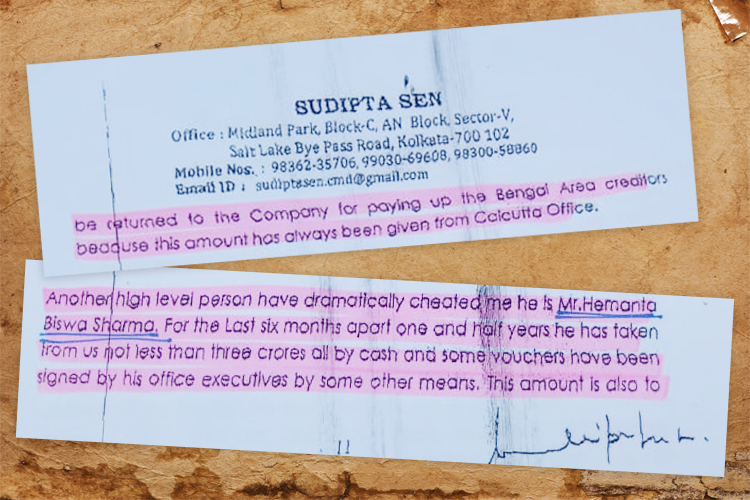 SUDIPTA SEN
Office : Midland Park, Block-C, AN Block, Sector-V,
Salt Lake Bye Pass Road, Kolkata-700 102
Mobile Nos. : 98362-35706, 99030-69608, 98300-58860
Email ID : sudiptasen.cmd@gmail.com
be returned to the Company for paying up the Bengal Area creditors
because this amount has always been given from Calcutta Office.
Another high level person have dramatically cheated me he is Mr.Hemanta
Biswa Sharma. For the Last six months apart one and half years he has taken
from us not less than three crores all by cash and some vouchers have been
signed by his office executives by some other means. This amount is also to